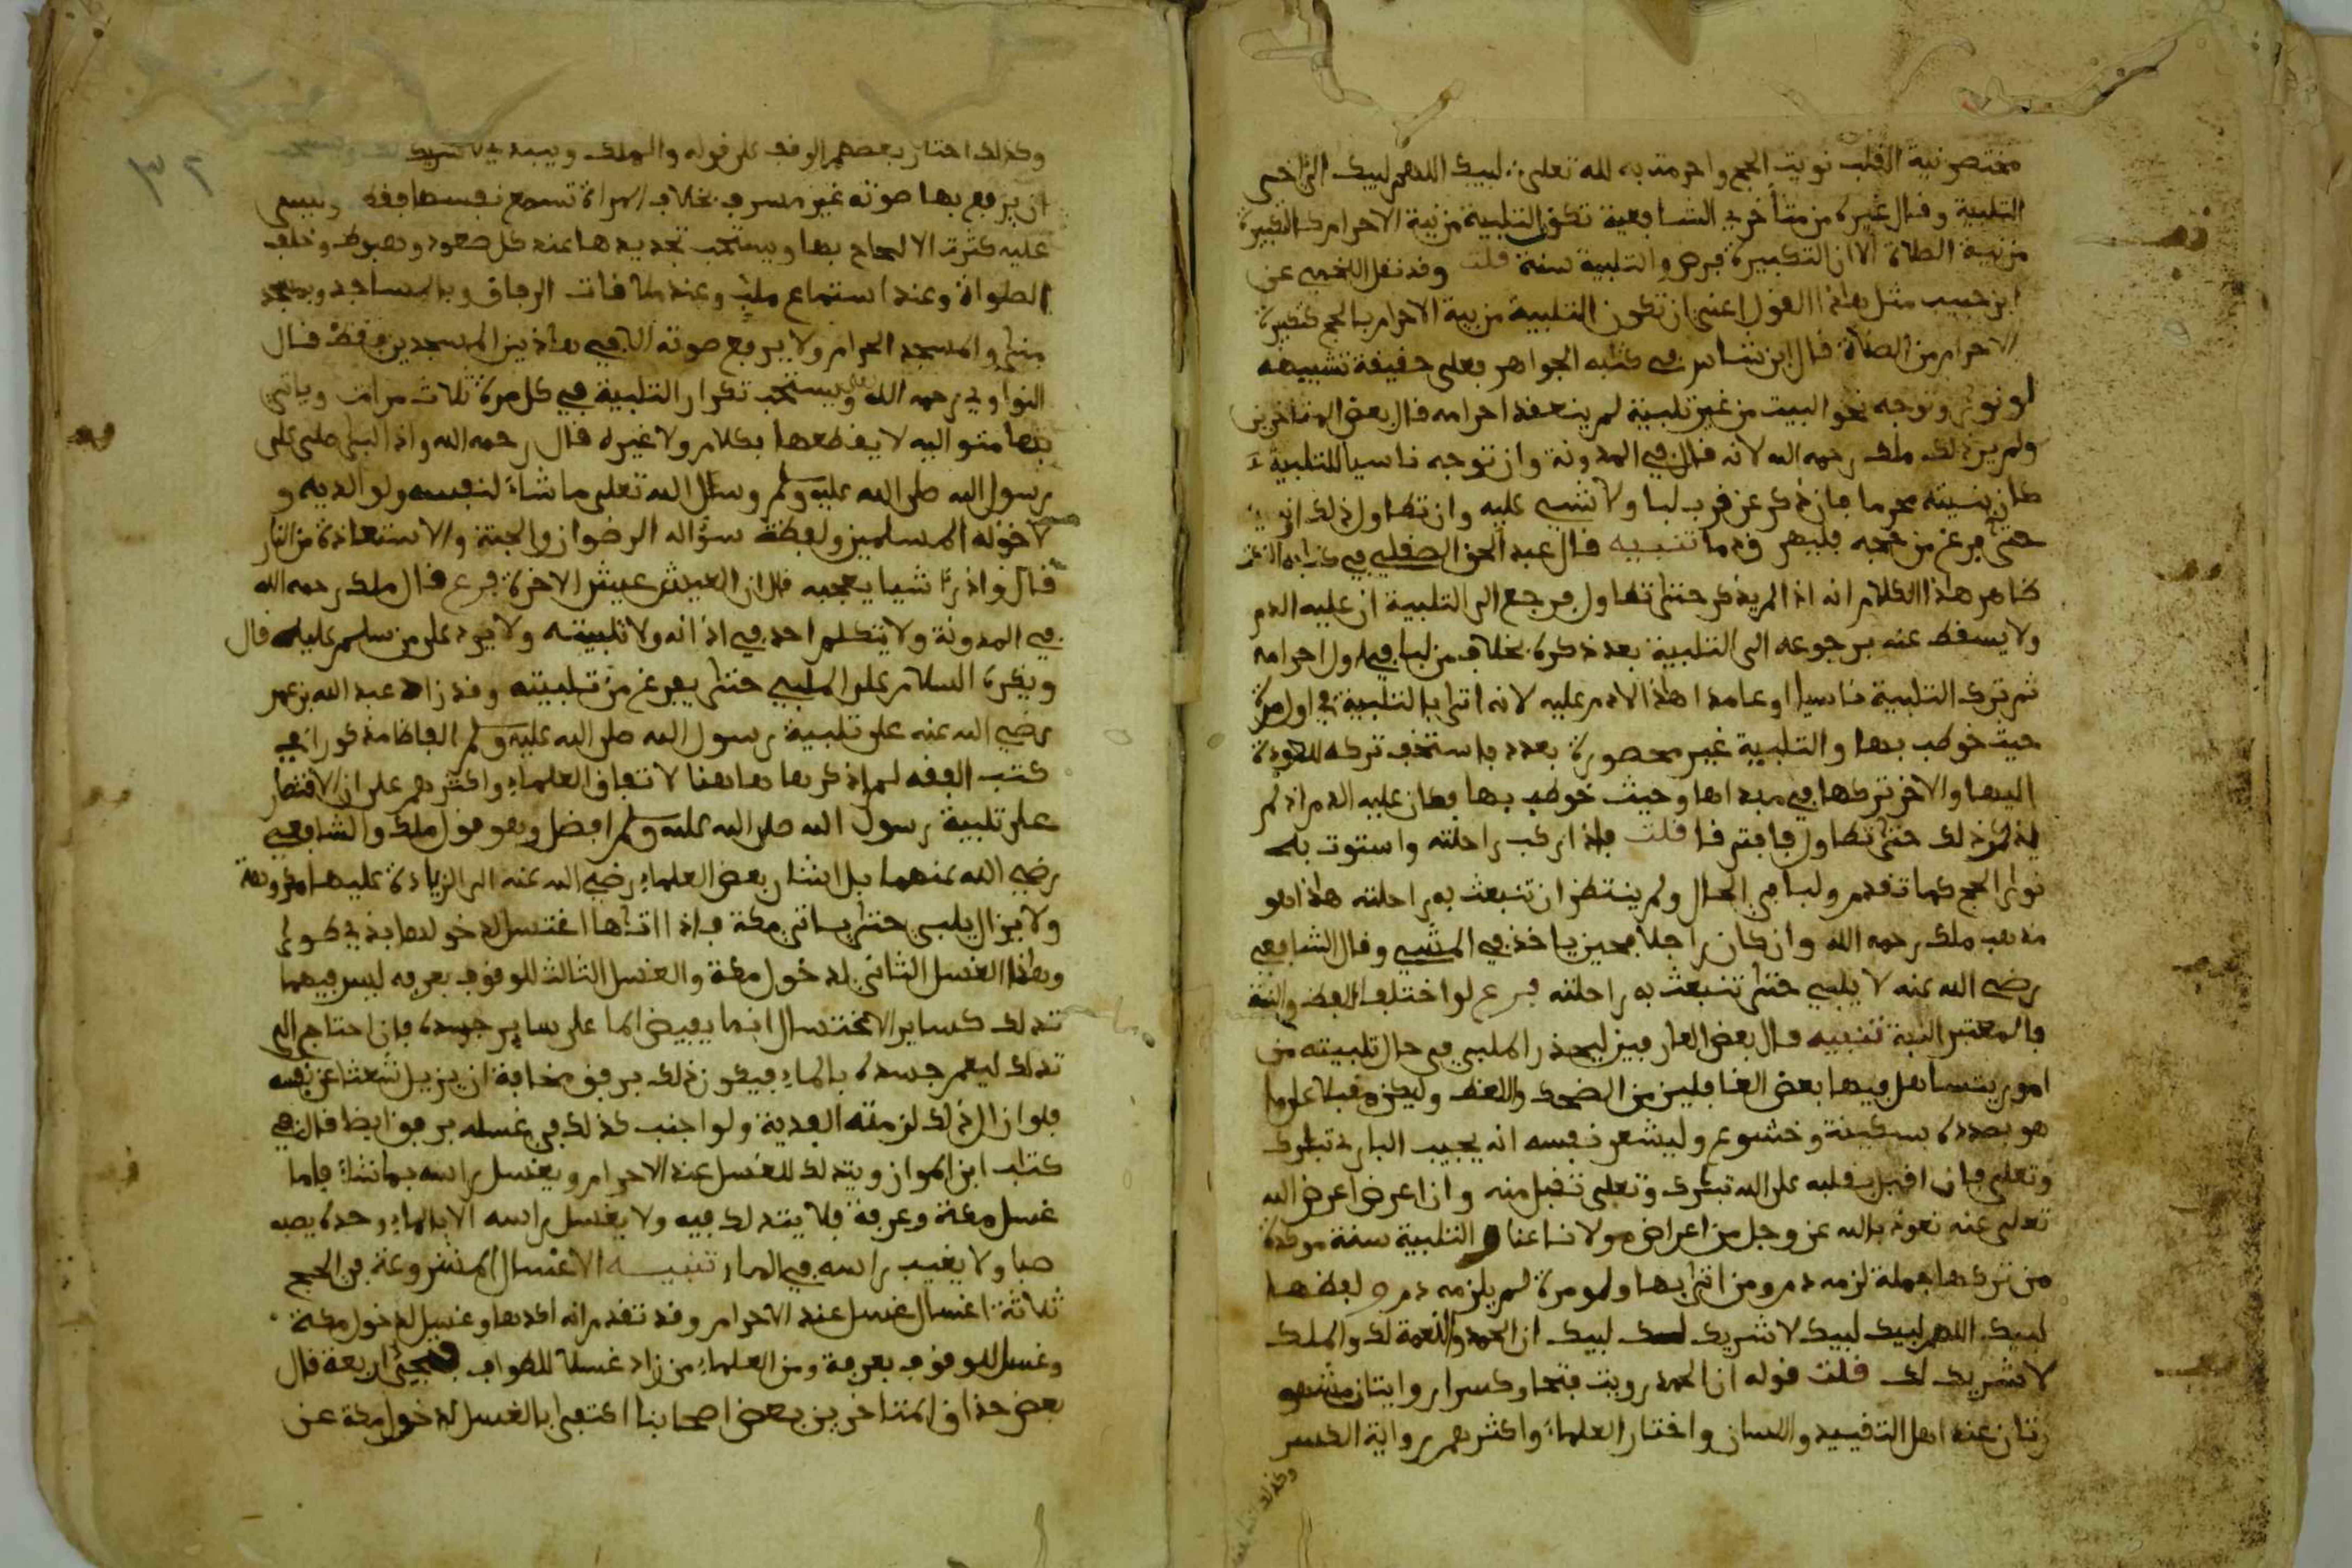 مختصر نية القلب نويت الحج واحرمت به لله تعلى لبيك اللهم لبيك الى اخر
التلبية وقال غيره من متأخري الشافعية تكون التلبية من نية الاحرام كالتكبيرة
من نية الصلاة الا ان التكبيرة فرض والتلبية سنة قلت وقد نقل اللخمي عن
ابن حبيب مثل هذا القول اعني ان تكون التلبية من نية الاحرام بالحج كتكبيرة
الاحرام من الصلاة قال ابن شاس في كتابه الجواهر فعلى حقيقة تشبيهه
لو نوى وتوجه نحو البيت من غير تلبية لم ينعقد احرامه قال بعض المتاخرين
ولم ير ذلك ملك رحمه الله لانه قال في المدونة وان توجه ناسيا للتلبية
كان بنيته محرما فان ذكر عن قرب لبا ولا شيء عليه وان تطاول ذلك به
حتى فرغ من حجه فليهرق دما تنبيه قال عبد الحق الصقلي في كتابه
ظاهر هذا الكلام انه اذا لم يذكر حتى تطاول فرجع الى التلبية ان عليه الدم
ولا يسقط عنه برجوعه الى التلبية بعد ذكره بخلاف من لبا في اول احرامه
ثم ترك التلبية ناسيا او عامدا هذا لا دم عليه لانه اتى بالتلبية في اول مرة
حيث خوطب بها والتلبية غير محصورة بعدد فاستخف تركه للعودة
اليها والاخر تركها في مبداها وحيث خوطب بها فكان عليه الدم اذ لم
يذكر ذلك حتى تطاول فافترقا قلت فاذا ركب راحلته واستوت به
نوى الحج كما تقدم ولبا في الحال ولم ينتظر ان تنبعث به راحلته هذا هو
مذهب ملك رحمه الله وان كان راجلا فحين ياخذ في المشي وقال الشافعي
رضي الله عنه لا يلبي حتى تنبعث به راحلته فرع لو اختلف اللفظ والنية
فالمعتبر النية تنبيه قال بعض العارفين ليحذر الملبي في حال تلبيته من
امور يتساهل فيها بعض الغافلين من الضحك واللغط وليكن مقبلا على ما
هو بصدده بسكينة وخشوع وليشعر نفسه انه يجيب الباري تبارك
وتعلى فان اقبل بقلبه على الله تبارك وتعلى تقبل منه وان اعرض اعرض الله
تعلى عنه نعوذ بالله عز وجل من اعراض مولانا عنا والتلبية سنة موكدة
من تركها جملة لزمه دم ومن اتى بها ولو مرة لم يلزمه دم ولفظها
لبيك اللهم لبيك لبيك لا شريك لك لبيك ان الحمد والنعمة لك والملك
لا شريك لك قلت قوله ان الحمد رويت فتحا وكسرا روايتان مشهو
رتان عند اهل التقييد واللسان واختار العلماء واكثرهم رواية الكسر
وكذلك
٣٢
وكذلك اختار بعضهم الوقف على قوله والملك ويبتدي لا شريك
ان يرفع بها صوته غير مسرف بخلاف المراة تسمع نفسها فقط
عليه كثرة الالحاح بها ويستحب تجديدها عند كل صعود وهبوط وخلف
الصلوات وعند استماع ملب وعند ملاقات الرفاق وبالمساجد وبمسجد
منى والمسجد الحرام ولا يرفع صوته الا في هاذين المسجدين فقط قال
النواوي رحمه الله تعلى ويستحب تكرار التلبية في كل مرة ثلاث مرات وياتي
بها متواليه لا يقطعها بكلام ولا غيره قال رحمه الله واذا لبى صلى على
رسول الله صلى الله عليه وسلم وسئل الله تعلى ما شاء لنفسه ولوالديه و
لاخوته المسلمين ولفظة سؤاله الرضوان والجنة والاستعاذة من النار
قال واذا رءا شيا يعجبه قال ان العيش عيش الاخرة فرع قال ملك رحمه الله
في المدونة ولا يتكلم احد في اذانه ولا تلبيته ولا يرد على من سلم عليه قال
ويكره السلام على الملبي حتى يفرغ من تلبيته وقد زاد عبد الله بن عمر
رضي الله عنه على تلبية رسول الله صلى الله عليه وسلم الفاظا مذكورة في
كتب الفقه لم اذكرها هاهنا لاتفاق العلماء واكثرهم على ان الاقتصار
على تلبية رسول الله صلى الله عليه وسلم افضل وهو قول ملك والشافعي
رضي الله عنهما بل اشار بعض العلماء رضي الله عنه الى الزيادة عليها مكروهة
ولا يزال يلبي حتى ياتي مكة فاذا اتاها اغتسل لدخولها بذي طوى
وهذا الغسل الثاني لدخول مكة والغسل الثالث للوقوف بعرفه ليس فيهما
تدلك كساير الاغتسال انما يفيض الما على ساير جسده فان احتاج الى
تدلك ليعم جسده بالماء فيكون ذلك برفق مخافة ان يزيل شعثا عن نفسه
فلو ازال ذلك لزمته الفدية ولو اجنب كذلك في غسله برفق ايضا قال في
كتاب ابن المواز ويتدلك للغسل عند الاحرام ويغسل راسه بما شاء فاما
غسل مكة وعرفة فلا يتدلك فيه ولا يغسل راسه الا بالماء وحده يصبه
صبا ولا يغيب راسه في الماء تنبيه الاغسال المشروعة في الحج
ثلاثة اغسال غسل عند الاحرام وقد تقدم انه اكدها وغسل لدخول مكة
وغسل للوقوف بعرفة ومن العلماء من زاد غسلا للطواف فتجيء اربعة قال
بعض حذاق المتاخرين بعض اصحابنا اكتفى بالغسل لدخول مكة عن